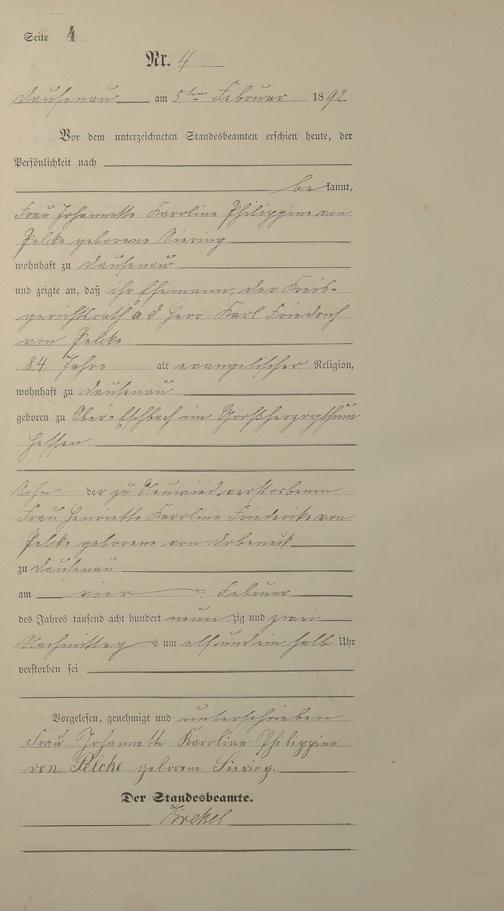 Seite 4
Nr. 4
Dausenau am 5ten Februar 1892
Vor dem unterzeichneten Standesbeamten erschien heute, der
Persönlichkeit nach
bekannt,
Frau Johannette Karoline Philippine von
Pelcke geborene Siering
wohnhaft zu Dausenau
und zeigte an, daß ihr Ehemann, der Kreis-
gerichtsrath a d Herr Karl Friedrich
von Pelcke
84 Jahre alt evangelischer Religion,
wohnhaft zu Dausenau
geboren zu Ober-Eschbach im Großherzogthum
Hessen
Sohn der zu Neuwied verstorbenen
Frau Henriette Karoline Friederike von
Pelcke geborene von
zu Dausenau
am vier Februar
des Jahres tausend acht hundert neunzig und zwei
Nachmittags um elf und ein halb Uhr
verstorben sei
Vorgelesen, genehmigt und unterschrieben
Frau Johannette Karoline Philippine
von Pelcke geborene Siering.
Der Standesbeamte.